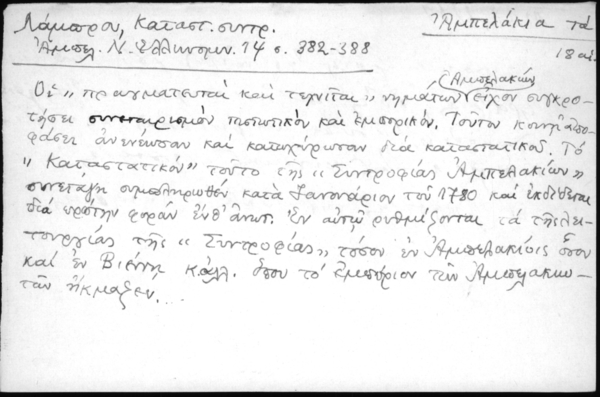 Λάμπρου, Καταστ. συντρ. Ἀμπελάκια τὰ
Ἀμπελ. Ν. Ἑλληνομν. 14 σ. 382-388 18 αἰ.
Οἱ "πραγματευταὶ καὶ τεχνῖται" νημάτων (Ἀμπελακίων) εἶχον συγκρο-
τήσει συνεταιρισμὸν πιστωτικὸν καὶ ἐμπορικόν. Τοῦτον κοινῇ ἀπο-
φάσει ἀνενέωσαν καὶ κατωχύρωσαν διὰ καταστατικοῦ. Τὸ
"Καταστατικὸν" τοῦτο τῆς "Συντροφίας Ἀμπελακίων"
συνετάγη συμπληρωθὲν κατὰ Ἰανουάριον τοῦ 1780 καὶ ἐκδίδεται
διὰ πρώτην φορὰν ἔνθ' ἀνωτ. Ἐν αὐτῷ ρυθμίζονται τὰ τῆς λει-
τουργίας τῆς "Συντροφίας" τόσον ἐν Ἀμπελακίοις ὅσον
καὶ ἐν Βιέννῃ κ.ἀλλ. ὅπου τὸ ἐμπόριον τῶν Ἀμπελακιω-
τῶν ἤκμαζεν.